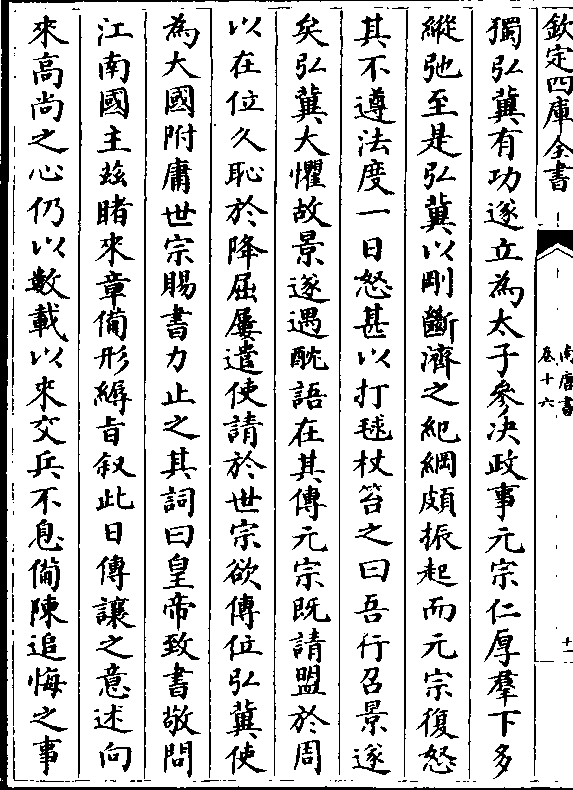 欽定四庫全書
南唐書
卷十六
十一
獨弘冀有功遂立為太子參决政事元宗仁厚羣下多
縱弛至是弘冀以剛斷濟之紀綱頗振起而元宗復怒
其不遵法度一日怒甚以打毬杖笞之曰吾行召景遂
矣弘冀大懼故景遂遇酖語在其傳元宗既請盟於周
以在位久恥於降屈屢遣使請於世宗欲傳位弘冀使
為大國附庸世宗賜書力止之其詞曰皇帝致書敬問
江南國主兹睹來章備形縟旨叙此日傳讓之意述向
來高尚之心仍以數載以來交兵不息備陳追悔之事